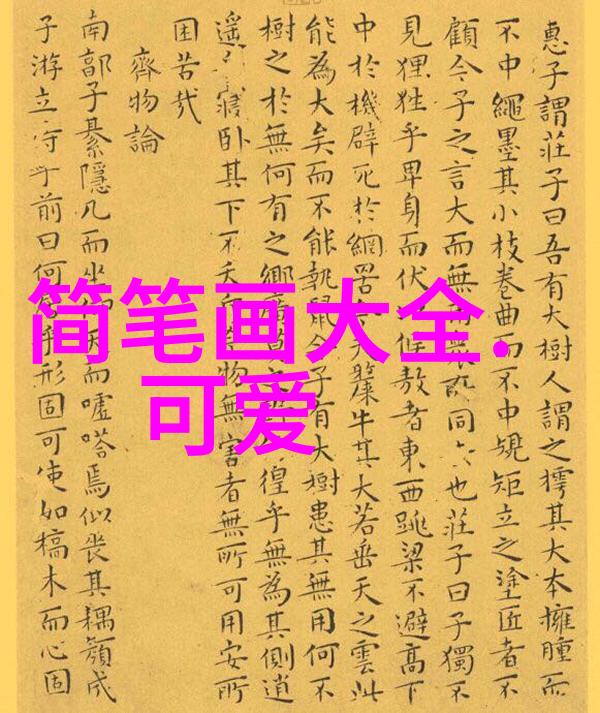 简笔画大全.
可爱
惠子謂莊子曰吾有大樹人謂之樗其大本擁腫而
不中繩墨其小枝卷曲而不中規矩立之塗匠者不
顧今子之言大而無所同也莊子曰子獨不
見狸狌乎卑身而伏候敖者東西跳梁不避高下
中於機辟死於網罟夫斄牛其大若垂天之雲此
能為大矣而不能執鼠今子有大樹患其無用何不
樹之於無何有之鄉廣莫之野徨乎無為其側逍
遥寢卧其下不夭物無害者無所可用安所
困苦哉
齊物論
南郭子綦隱几而坐而嘘嗒焉似喪其耦顏成
子游立侍乎前曰何乎形固可使如槁木而心固